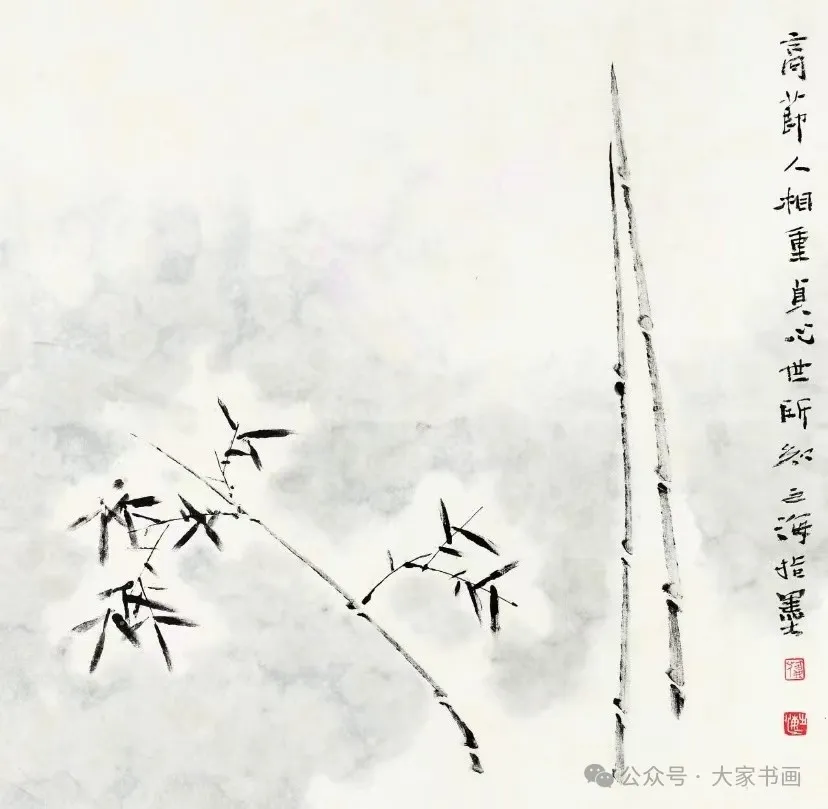 高節人相重貞心世所知之海指墨
公众号 · 大家书画